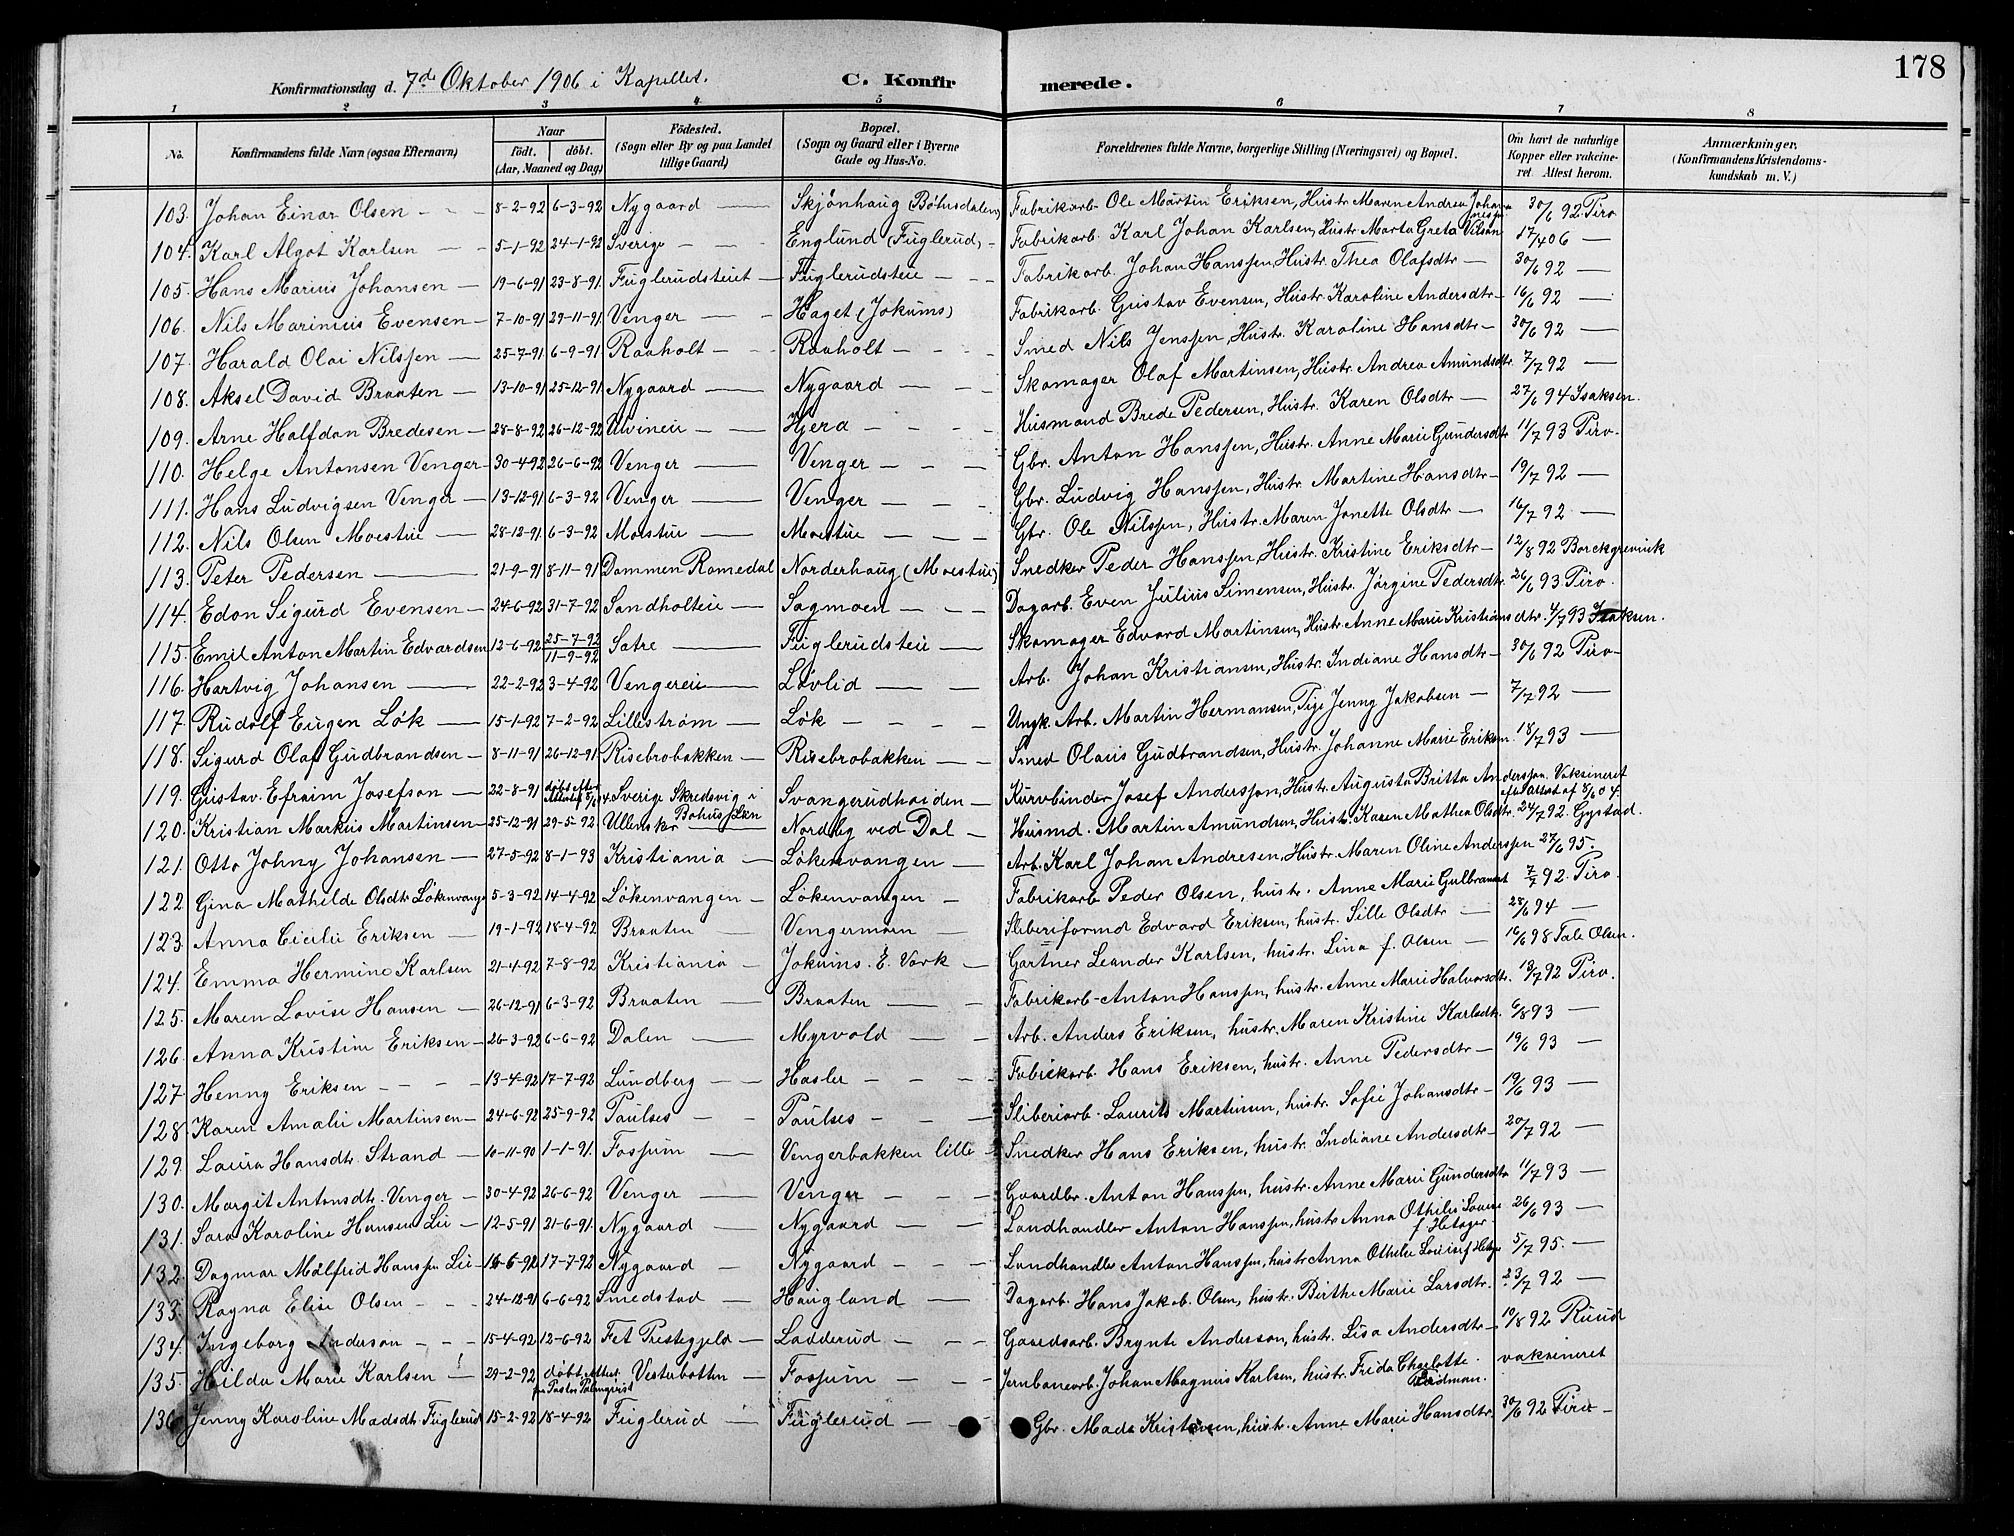 178
Konfirmationsdag d. 7de Oktober 1906 i Kapellet. C. Konfirmerede.
1 2 3 4 5 6 7 8
No. Konfirmandens fulde Navn (ogsaa Efternavn) Naar födt. döbt. (Aar, Maaned og Dag) Födested. (Sogn eller By og paa Landet tillige Gaard) Bopæl. (Sogn og Gaard eller i Byerne Gade og Hus-No. Forældrenes fulde Navne, borgerlige Stilling (Næringsvei) og Bopæl. Om havt de naturlige Kopper eller vakcineret Attest herom. Anmærkninger. (Konfirmandens Kristendomskundskab m. V.)
103. Johan Einar Olsen 8-2-92 6-3-92 Nygaard Skjønhaug Bøhnsdalen Fabrikarb. Ole Martin Eriksen, Hustr. Maren Andrea Johannesen 30/6 92 Piro
104. Karl Algot Karlsen 5-1-92 24-1-92 Sverige Englund (Fuglerud) Fabrikarb. Karl Johan Karlsen, Hustr. Marta Greta Nilsen 17/4 06 —
105. Hans Marius Johansen 19-6-91 23-8-91 Fuglerudsteiet Fuglerudsteie Fabrikarb. Johan Hanssen, Hustr. Thea Olafsdtr 30/6 92 —
106. Nils Marinius Evensen 7-10-91 29-11-91 Venger Haget (Jokums) Fabrikarb. Gustav Evensen, Hustr. Karoline Andersdtr 16/6 92 —
107. Harald Olai Nilssen 25-7-91 6-9-91 Raaholt Raaholt Smed Nils Jenssen, Hustr. Karoline Hansdtr 30/6 92 —
108. Aksel David Braaten 13-10-91 25-12-91 Nygaard Nygaard Skomager Olaf Martinsen, Hustr. Andrea Amundsdtr 7/7 92 —
109. Arne Halfdan Bredesen 28-8-92 26-12-92 Uvineie Hjera Husmand Brede Pedersen, Hustr. Karen Olsdtr 27/6 94 Isaksen.
110. Helge Antonsen Venger 30-4-92 26-6-92 Venger Venger Gbr. Anton Hanssen, Hustr. Anne Marie Gundersdtr 11/7 93 Piro.
111. Hans Ludvigsen Venger 13-12-91 6-3-92 Venger Venger Gbr. Ludvig Hanssen, Hustr. Martine Hansdtr 19/7 92 —
112. Nils Olsen Moestue 28-12-91 6-3-92 Moestue Moestue Gbr. Ole Nilssen, Hustr. Maren Jonette Olsdtr 16/7 92 —
113. Peter Pedersen 21-9-91 8-11-91 Dammen Romedal Norderhaug (Moestue) Snedker Peder Hanssen, Hustr. Kristine Eriksdtr 12/8 92 Borckgrevink
114. Edon Sigurd Evensen 24-6-92 31-7-92 Sandholteie Sagmoen Dagarb. Even Julius Simensen, Hustr. Jørgine Pedersdtr 26/6 93 Piro.
115. Emil Anton Martin Edvardsen 12-6-92 25-7-92 11-9-92 Satre Fuglerudsteie Skomager Edvard Martinsen, Hustr. Anne Marie Kristiansdtr. 4/7 93 Isaksen.
116. Hartvig Johansen 22-2-92 3-4-92 Vengereie Løvlid Arb. Johan Kristiansen, Hustr. Indiane Hansdtr 30/6 92 Piro
117. Rudolf Eugen Løk 15-1-92 7-2-92 Lillestrøm Løk Ungk. Arb. Martin Hermansen, Pige Jenny Jakobsen 7/7 92 —
118. Sigurd Olaf Gudbrandsen 8-11-91 26-12-91 Risebrobakken Risebrobakken Smed Olaus Gudbrandsen, Hustr. Johanne Marie Eriksen 18/7 93 —
119. Gustav Efraim Josefson 22-8-91 døbt efter Attest af Sverige Skredsvig i Bohus Len Svangerudhaiden Kurvbinder Josef Andersson, Hustr. Augusta Britta Andersson. Vaksineret eft. Attest af 8/6 04.
120. Kristian Markus Martinsen 25-12-91 29-5-92 Ullensker Nordby ved Dal Husmd. Martin Amundsen, Hustr. Karen Mathea Olsdtr. 24/7 92. Gystad.
121. Otto Johny Johansen 27-5-92 8-1-93 Kristiania Løkenvangen Arb. Karl Johan Andresen, Hustr. Maren Oline Anderssen 27/6 95.
122. Gina Mathilde Olsdtr. Løkenvange 5-3-92 14-4-92 Løkenvangen Løkenvangen Fabrikarb Peder Olsen, hustr. Anne Marie Gulbrandst 7/7 92. Piro.
123. Anna Cicilie Eriksen 19-1-92 18-4-92 Braaten Vengermoen Sliberiformd Edvard Eriksen, hustr. Sille Olsdtr 28/6 94 —
124. Emma Hermine Karlsen 21-4-92 7-8-92 Kristiania Jokums. E. Værk Gartner Leander Karlsen, hustr. Lina f. Olsen 16/6 98 Tale Olsen.
125. Maren Lovise Hansen 26-12-91 6-3-92 Braaten Braaten Fabrikarb Anton Hanssen, hustr. Anne Marie Halvorsdtr. 13/7 92 Piro.
126. Anna Kristine Eriksen 26-3-92 6-6-92 Dalen Myrvold Arb. Anders Eriksen, hustr. Maren Kristine Karlsdtr. 6/8 93 —
127. Henny Eriksen 13-4-92 17-7-92 Lundberg Hasler Fabrikarb. Hans Eriksen, hustr. Anne Pedersdtr 19/6 93 —
128. Karen Amalie Martinsen 24-6-92 25-9-92 Paulses Paulses Sliberiarb. Laurits Martinsen, hustr. Sofie Johansdtr 19/6 93 —
129. Laura Hansdtr. Strand 10-11-90 1-1-91. Fossum Vengerbakken lille Snedker Hans Eriksen, hustr. Indiane Andersdtr 20/7 92 —
130. Margit Antonsdtr. Venger 30-4-92 26-6-92 Venger Venger Gaardbr. Anton Hanssen, hustr. Anne Marie Gundersdtr 11/7 93 —
131. Sara Karoline Hansen Lie 12-5-91 21-6-91. Nygaard Nygaard Landhandler Anton Hanssen, hustr. Anna Othilie Lovise f. Hetager 26/6 93 —
132. Dagmar Målfrid Hanssen Lie 16-6-92 17-7-92 Nygaard Nygaard Landhandler Anton Hanssen, hustr Anna Othilie Lovise f Hetger 5/7 95. —
133. Ragna Elise Olsen 24-12-91 6-6-92 Smedstad Haugland Dagarb. Hans Jakob Olsen, hustr. Birthe Marie Larsdtr. 23/7 92 —
134. Ingeborg Anderson 15-4-92 12-6-92 Fet Prestegjeld Ladderud Gaardsarb. Brynte Andersson, hustr. Lisa Andersdtr 19/8 92 Ruud
135. Hilda Marie Karlsen 29-2-92 døbt. Attest fra Pastor Palmqvist Vesterbotten Fossum Jernbanearb. Johan Magnus Karlsen, hustr. Frida Charlotte Vaksineret
136. Jenny Karoline Madsdtr Fuglerud 15-2-92 18-4-92 Fuglerud Fuglerud Gbr. Mads Kristensen, hustr. Anne Marie Hansdtr. 30/6 92 Piro